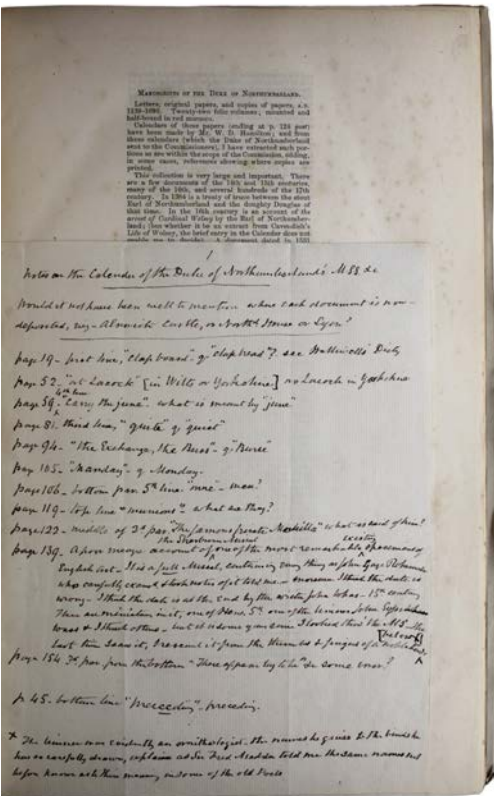 MANUSCRIPTS OF THE DUKE OF NORTHUMBERLAND.
Letters, original papers, and copies of papers, A.D.
volumes; mounted and
half-bound in red morocco.
Calendars of these papers (ending at p. 124 post)
have been made by Mr. W. D. Hamilton; and from
these calendars (which the Duke of Northumberland
sent to the Commissioners), I have extracted such por-
tions as are within the scope of the Commission, adding,
in some cases, references showing where copies are
printed.
This collection is very large and important. There
are a few documents of the 14th and 15th centuries,
many of the 16th, and several hundreds of the 17th
century. In 1384 is a treaty of truce between the stout
Earl of Northumberland and the doughty Douglas of
that time. In the 16th century is an account of the
arrest of Cardinal Wolsey by the Earl of Northumber-
land; (but whether it be an extract from Cavendish's
Life of Wolsey, the brief entry in the Calendar does not
enable me to decide). A document dated in 1531
1
Notes on the Calendar of the Duke of Northumberland's MSS &c
Would it not have been well to mention where each document is now
deposited, Alnwick Castle, or North'd House or Syon?
page 19 - first line, "clap board" - q "clap bread"? see Halliwell's Dicty
page 52 - "at Lacock" [in Wilts or Yorkshire] as Lacock in Yorkshire
page 59 - "Carry the june" - what is meant by "june"
page 81. third line, "quite" q "quiet"
page 94 - "the Exchange, the Buos" - q "Burse"
page 105 - "Manday" - q Monday.
page 106 - bottom par. 5th line. "mne" - men?
page 119 - top line what are they?
page 122 - middle of 3d par "The famous pirate what is said of him?
the Sherborn Missal existing
page 139. A poor meagre account of one of the most remarkable specimens of
English Art - It is a full Missal, containing every thing as John Gage Rokewode
who carefully exam'd & took notes of it told me - moreover I think the date is
wrong - I think the date is at the end by the writer John Whas - 15th century
There are miniatures in it, one of Hen. 5th one of the
& I think others - but it is some years since I looked thro' the MS - the
last time I saw it, I rescued it from the thumbs & fingers of a
page 154 7th par from the bottom "There appear by to be" &c some error?
p 45. bottom line "preceeding" - preceding.
* The limner was evidently an ornithologist - the names he gives to the birds he
has so carefully drawn, explain as Sir Fred Madden told me the same names not
before known as to their meaning in some of the old Poets